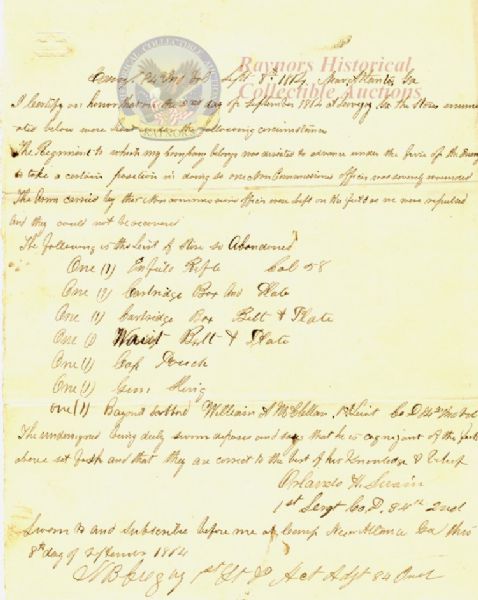 Raynors Historical
Collectible Auctions
HISTORICAL COLLECTIBLE AUCTIONS
RAYNORS
Camp 84 Ind Vol Sept 8th 1864 Near Atlanta Ga
I certify on honor that on the day of September 1864 at Lovejoy Ga the stores enumer
ated below were under the following circumstances
The Regiment to which my Company belongs was desired to advance under the fire of the Enemy
to take a certain position in doing so one Non Commissioned Officer was severely wounded
The Arms carried by this Non commissioned officer were left on the field as we were repulsed
and they could not be recovered
The following is the List of store so Abandoned
One (1) Enfield Rifle Cal 58
One (1) Cartridge Box And Plate
One (1) Cartridge Box Belt & Plate
One (1) Waist Belt & Plate
One (1) Cap Pouch
One (1) Gun Sling
one (1) Bayonet William A McClellan 1st Lieut Co D 84th Ind Vol
The undersigned being duly sworn deposes and says that he is cognizant of the facts
above set forth and that they are correct to the best of his Knowledge & Belief
Orlando H. Swain
1st Sergt Co. D. 84th Ind
Sworn to and subscribe before me at Camp Near Atlanta Ga this
8th day of September 1864
1st Lt Act Adjt 84 Ind